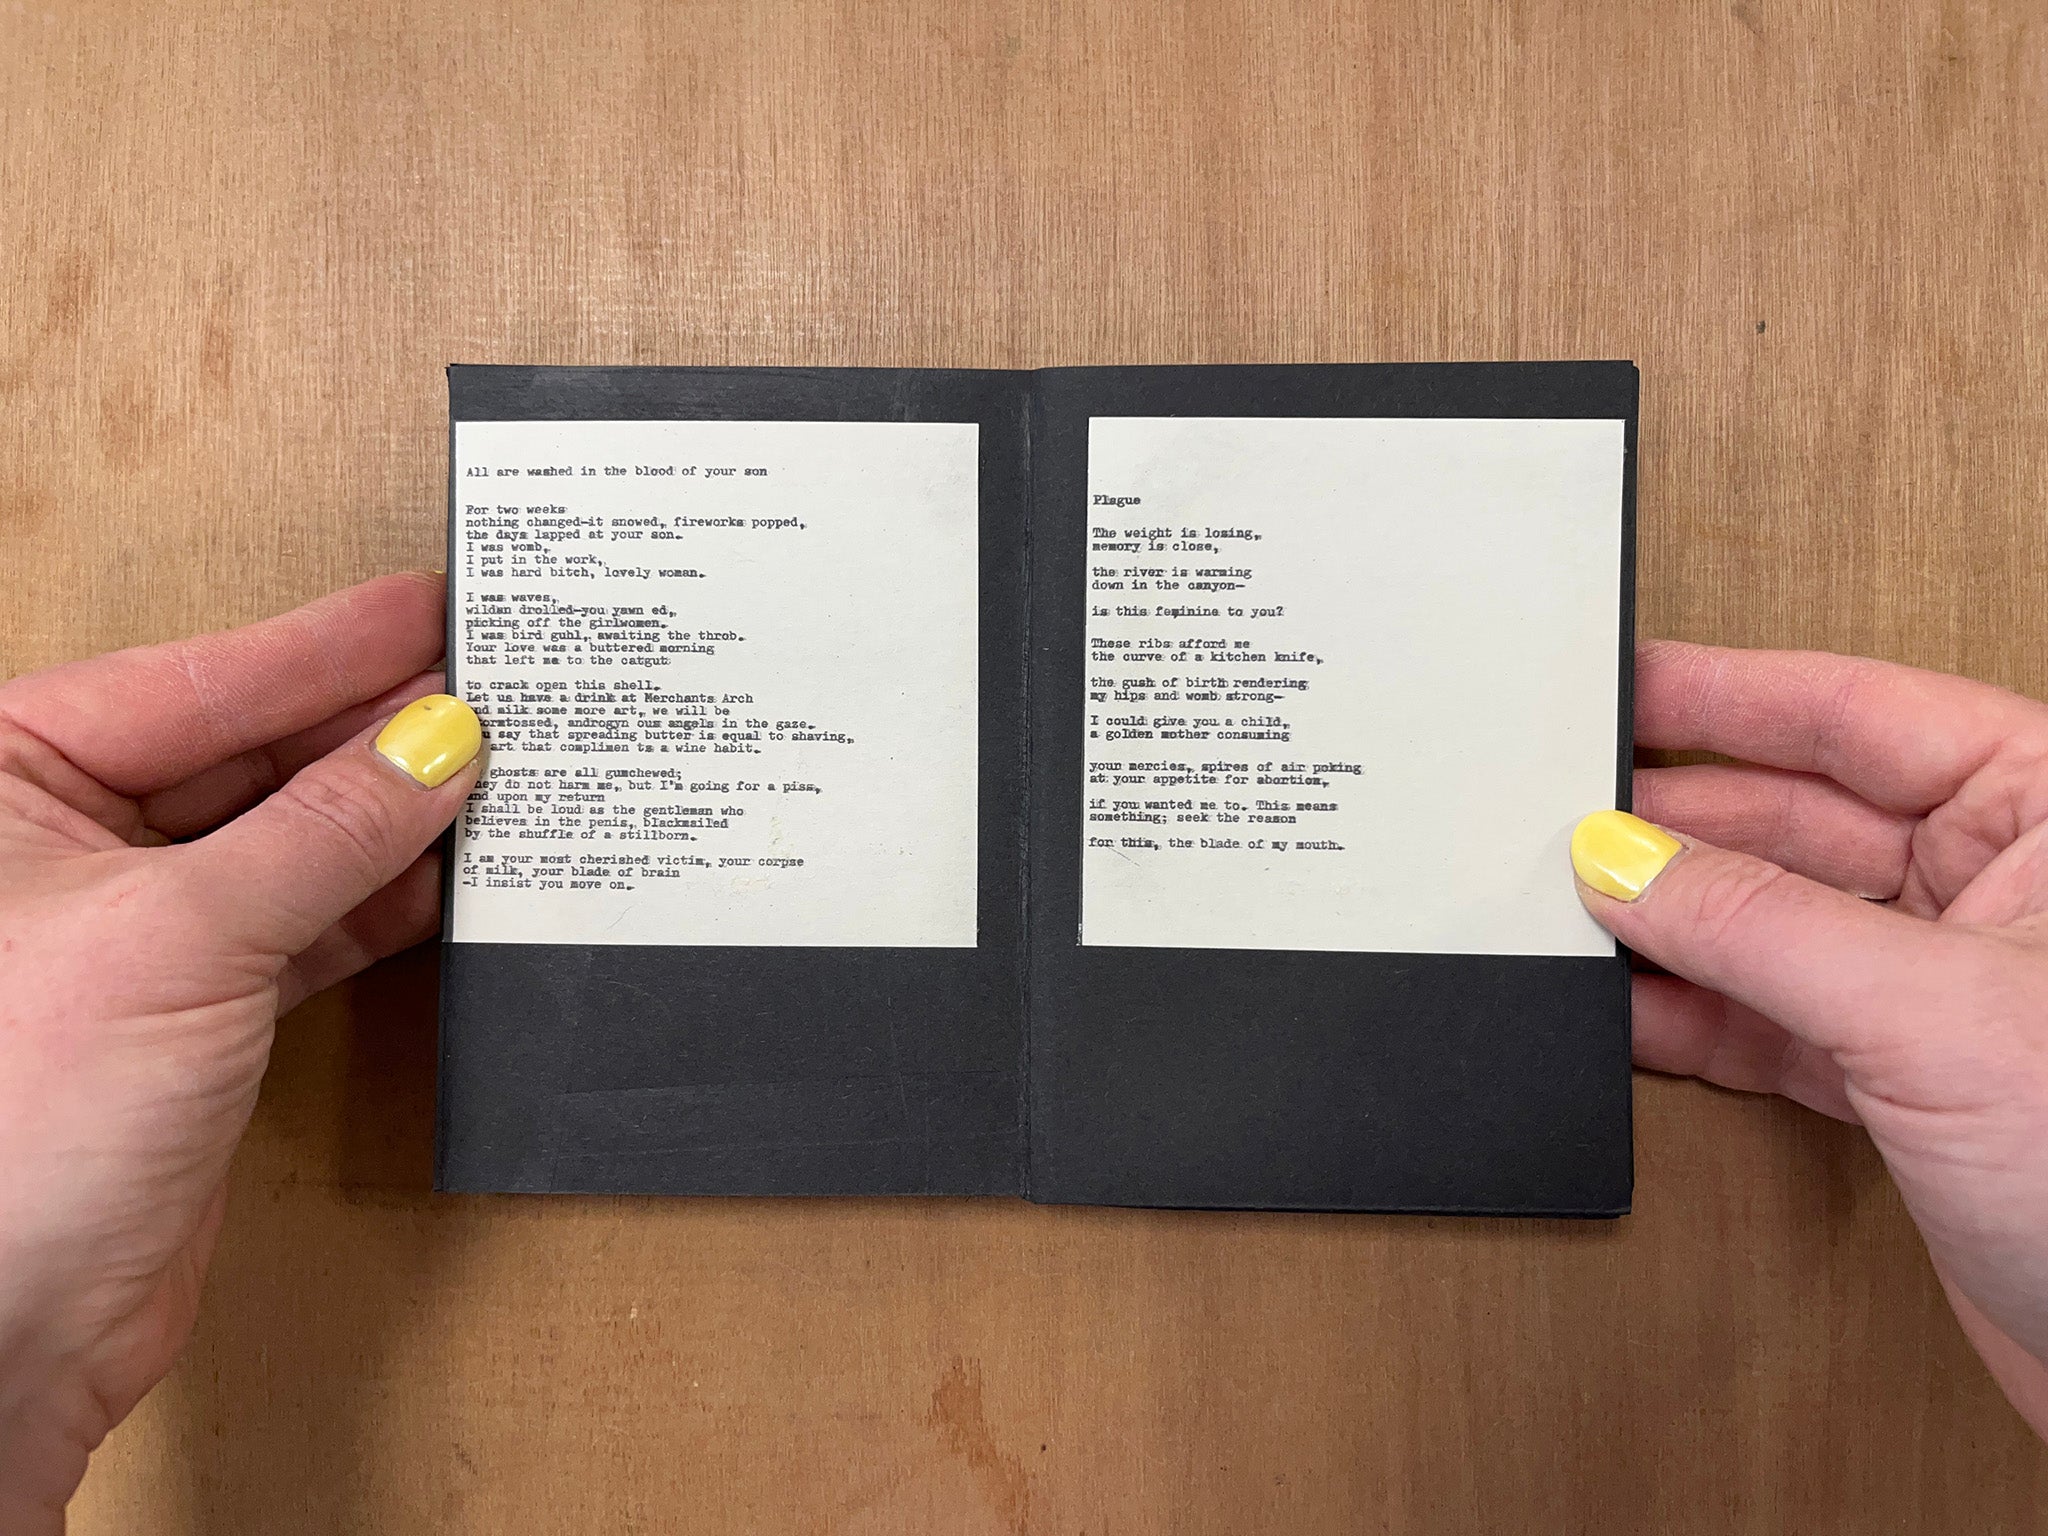 All are washed in the blood of your son
For two weeks
nothing changed—it snowed, fireworks popped,
the days lapped at your son.
I was womb,
I put in the work,
I was hard bitch, lovely woman.
I was waves,
wildan drolled—you yawn ed,
picking off the girlwomen.
I was bird guhl, awaiting the throb.
Your love was a buttered morning
that left me to the catgut
to crack open this shell.
Let us have a drink at Merchants Arch
and milk some more art, we will be
stormtossed, androgyn ous angels in the gaze.
say that spreading butter is equal to shaving,
art that complimen ts a wine habit.
ghosts are all gumchewed;
they do not harm me, but I'm going for a piss,
and upon my return
I shall be loud as the gentleman who
believes in the penis, blackmailed
by the shuffle of a stillborn.
I am your most cherished victim, your corpse
of milk, your blade of brain
—I insist you move on.
Plague
The weight is losing,
memory is close,
the river is warming
down in the canyon—
is this feminine to you?
These ribs afford me
the curve of a kitchen knife,
the gush of birth rendering
my hips and womb strong—
I could give you a child,
a golden mother consuming
your mercies, spires of air poking
at your appetite for abortion,
if you wanted me to. This means
something; seek the reason
for this, the blade of my mouth.